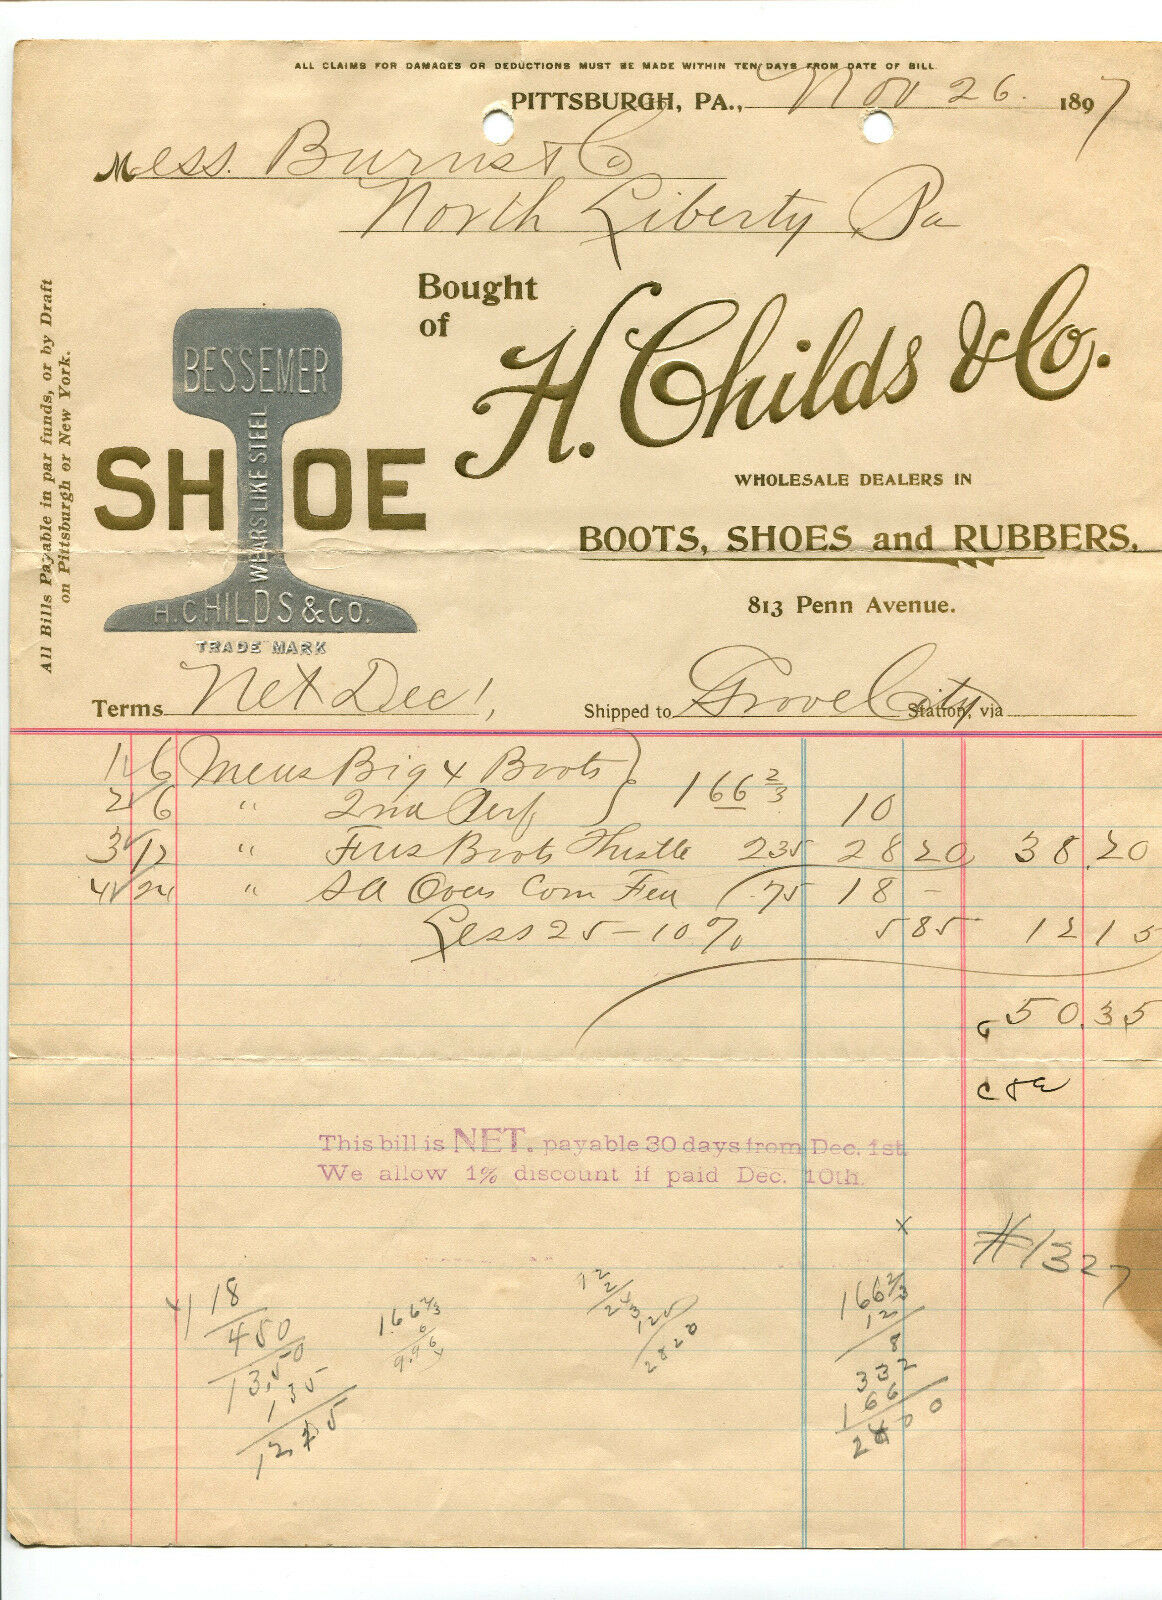 ALL CLAIMS FOR DAMAGES OR DEDUCTIONS MUST BE MADE WITHIN TEN DAYS FROM DATE OF BILL.
PITTSBURGH, PA., Nov 26. 1897
Mess. Burns & Co
North Liberty Pa
Bought of H. Childs & Co.
All Bills Payable in par funds, or by Draft
on Pittsburgh or New York.
BESSEMER
SHOE
WEARS LIKE STEEL
H. CHILDS & CO.
TRADE MARK
WHOLESALE DEALERS IN
BOOTS, SHOES and RUBBERS,
813 Penn Avenue.
Terms Net Dec 1,
Shipped to Grove City Station, via
1 6 Mens Big 4 Boots
2 6 " 2nd 166 2/3 10
3 12 " Boots 235 28 20 38.20
4 24 " Overs Com .75 18 -
Less 25-10% 585 1215
50.35
This bill is NET. payable 30 days from Dec. 1st.
We allow 1% discount if paid Dec. 10th.
x
#1327
18
450
13.50
135
1215
1.66 2/3
6
9.96
12
2
23
125
2820
166 2/3
12
8
332
166
2000